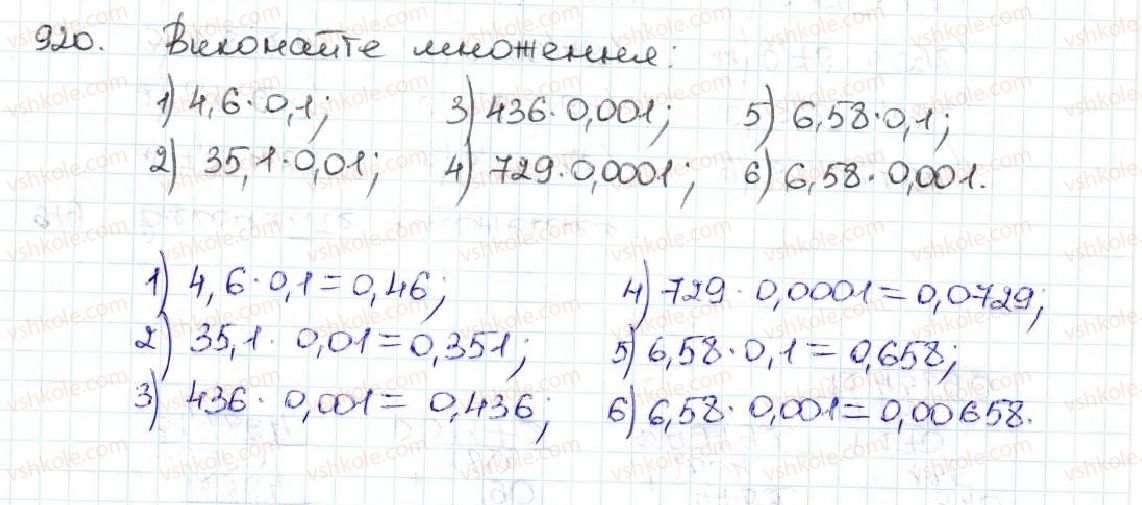 920. Виконайте множення:
1) 4,6·0,1; 3) 436·0,001; 5) 6,58·0,1;
2) 35,1·0,01; 4) 729·0,0001; 6) 6,58·0,001.
1) 4,6·0,1=0,46; 4) 729·0,0001=0,0729;
2) 35,1·0,01=0,351; 5) 6,58·0,1=0,658;
3) 436·0,001=0,436; 6) 6,58·0,001=0,00658.